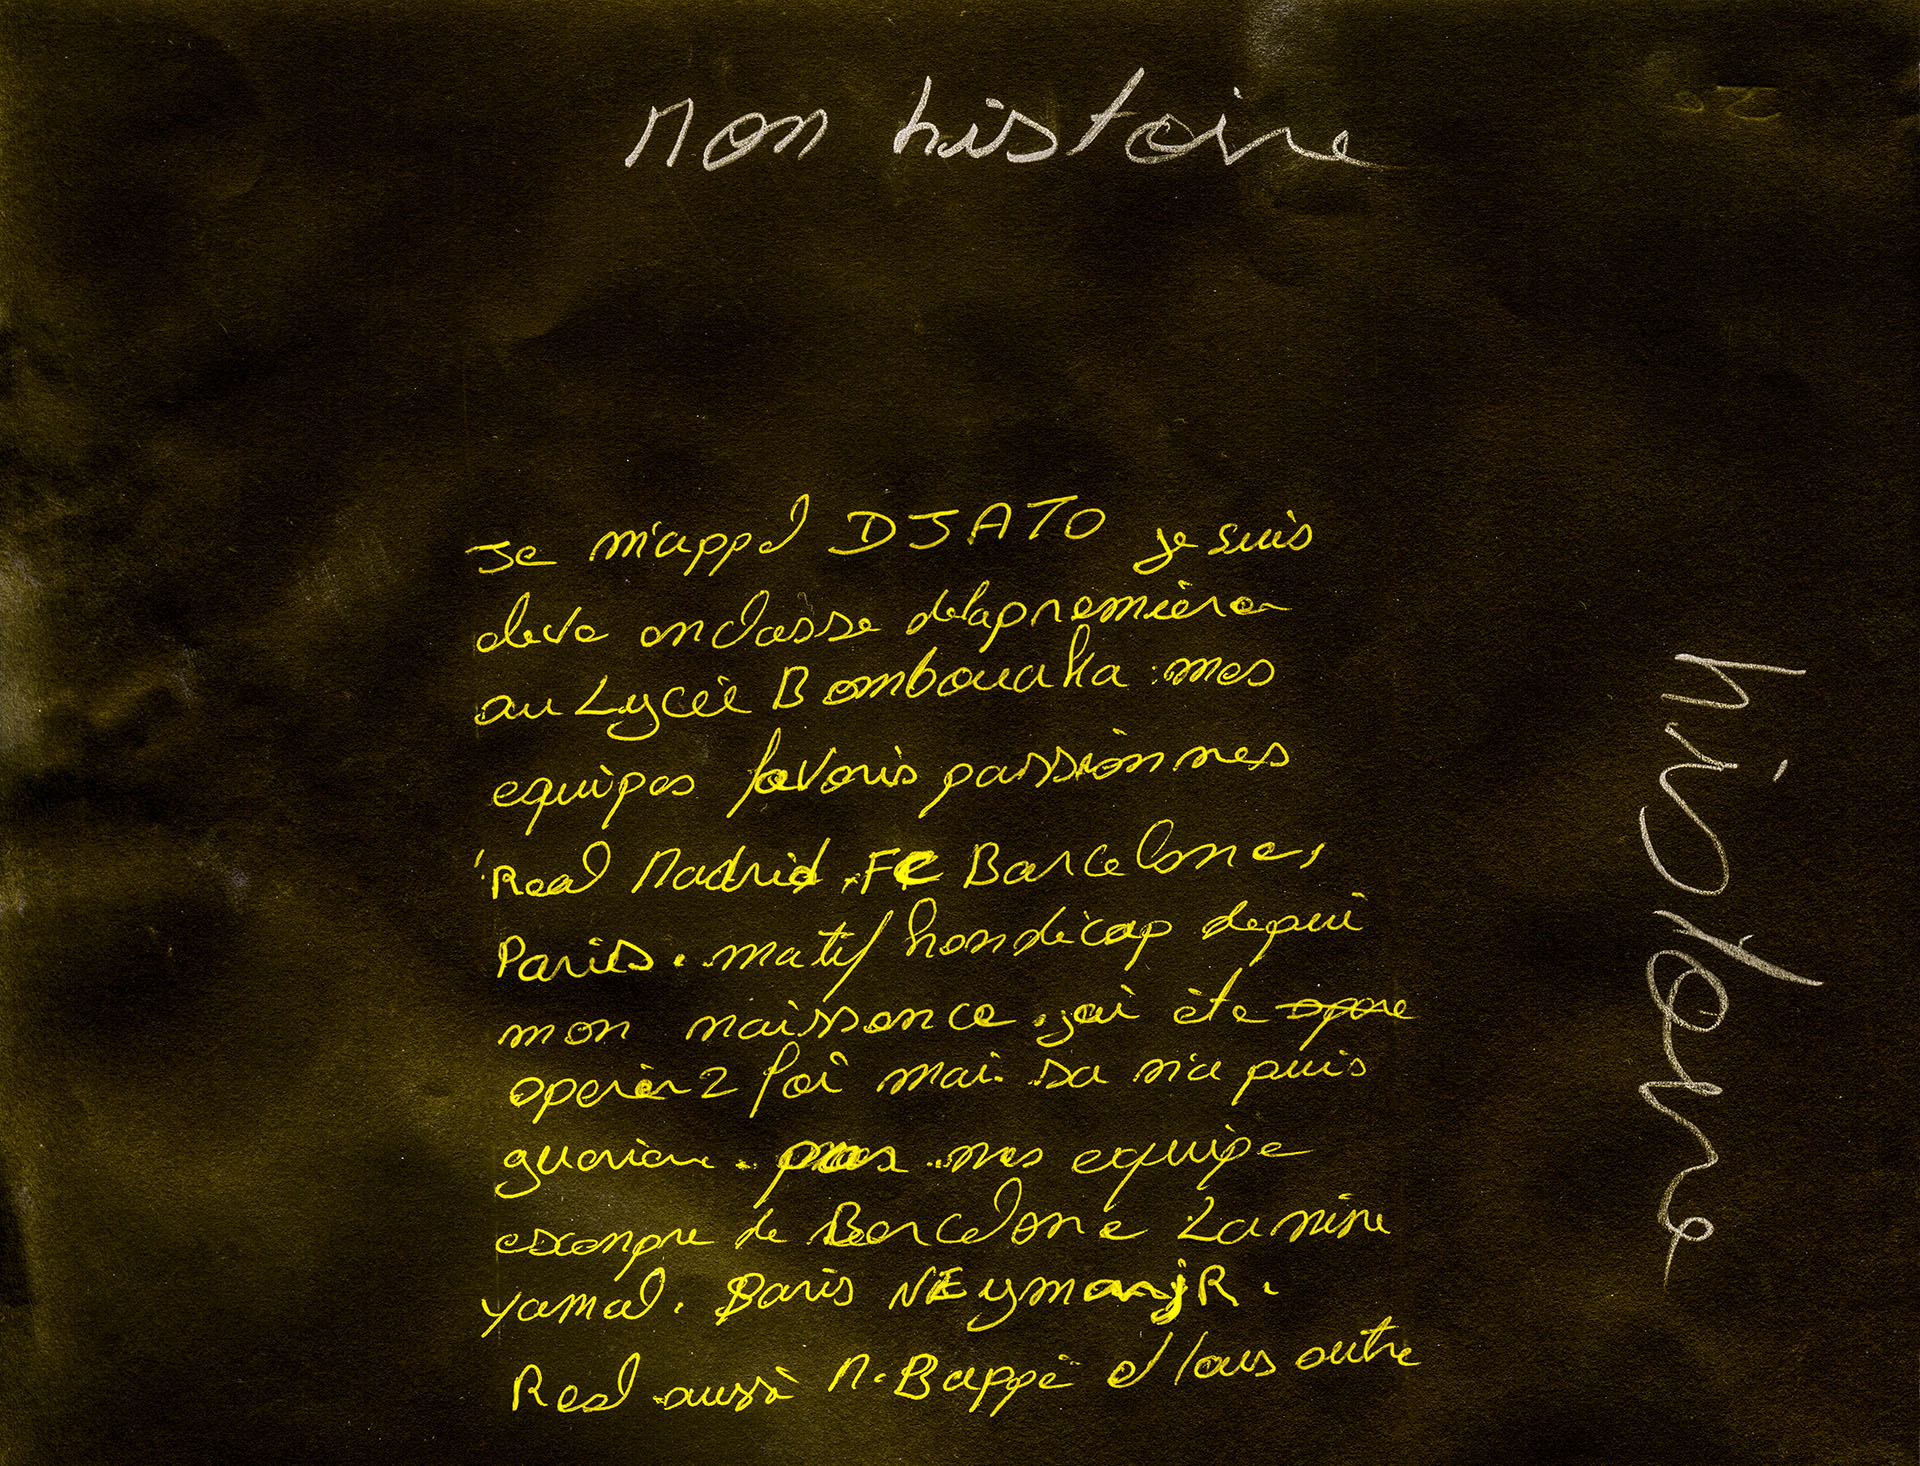 mon histoire
Je m'appel DJATO je suis
eleve en classe delapremière
au Lycée Bombouaka mes
equipes favoris passionnes
Real Madrid, FC Barcelone,
Paris. motif handicap depui
mon naissance, jai ète opere
operèr 2 foi mai sa n'a puis
guerière. mes equipe
exempre de Barcelone Lamine
Yamal. Paris NEymarjR.
Real aussi M.Bappé et tous outre
histoire